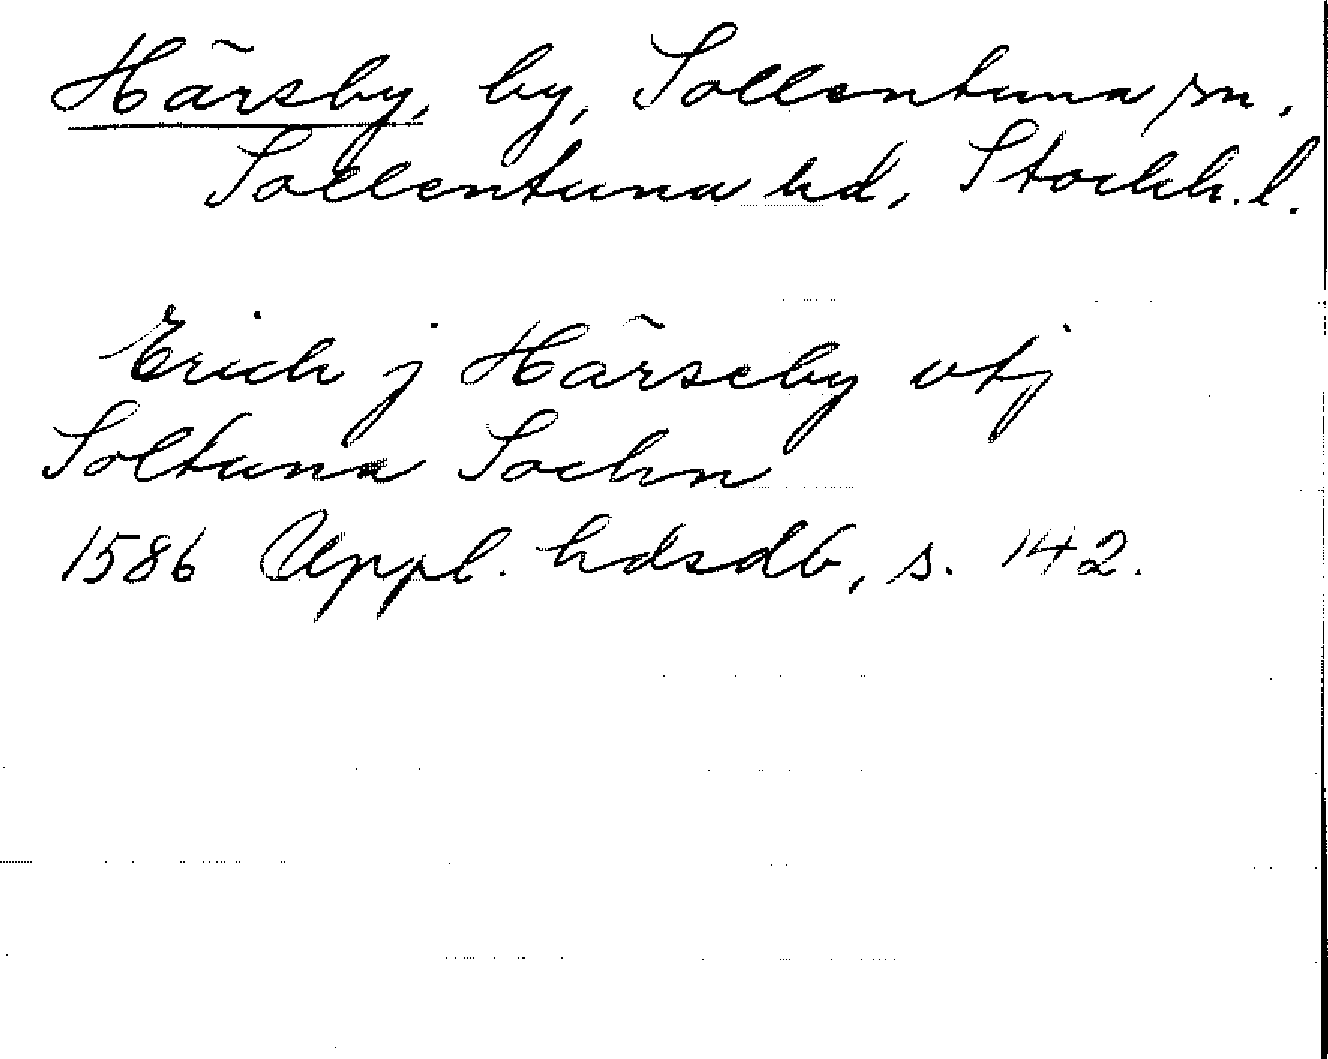 Härsby, by, Sollentuna sn.
Sollentuna hd, Stockh. l.
Erich j Härseby vtj
Soltuna Sochn
1586 Uppl. hdsdb, s. 142.